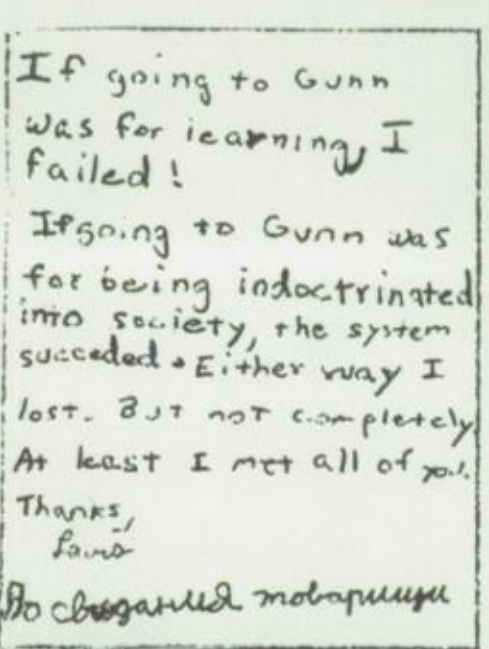 If going to Gunn
was for learning, I
failed!
If going to Gunn was
for being indoctrinated
into society, the system
succeded. Either way I
lost. But not completely
At least I met all of you.
Thanks,
До свидания товарищи